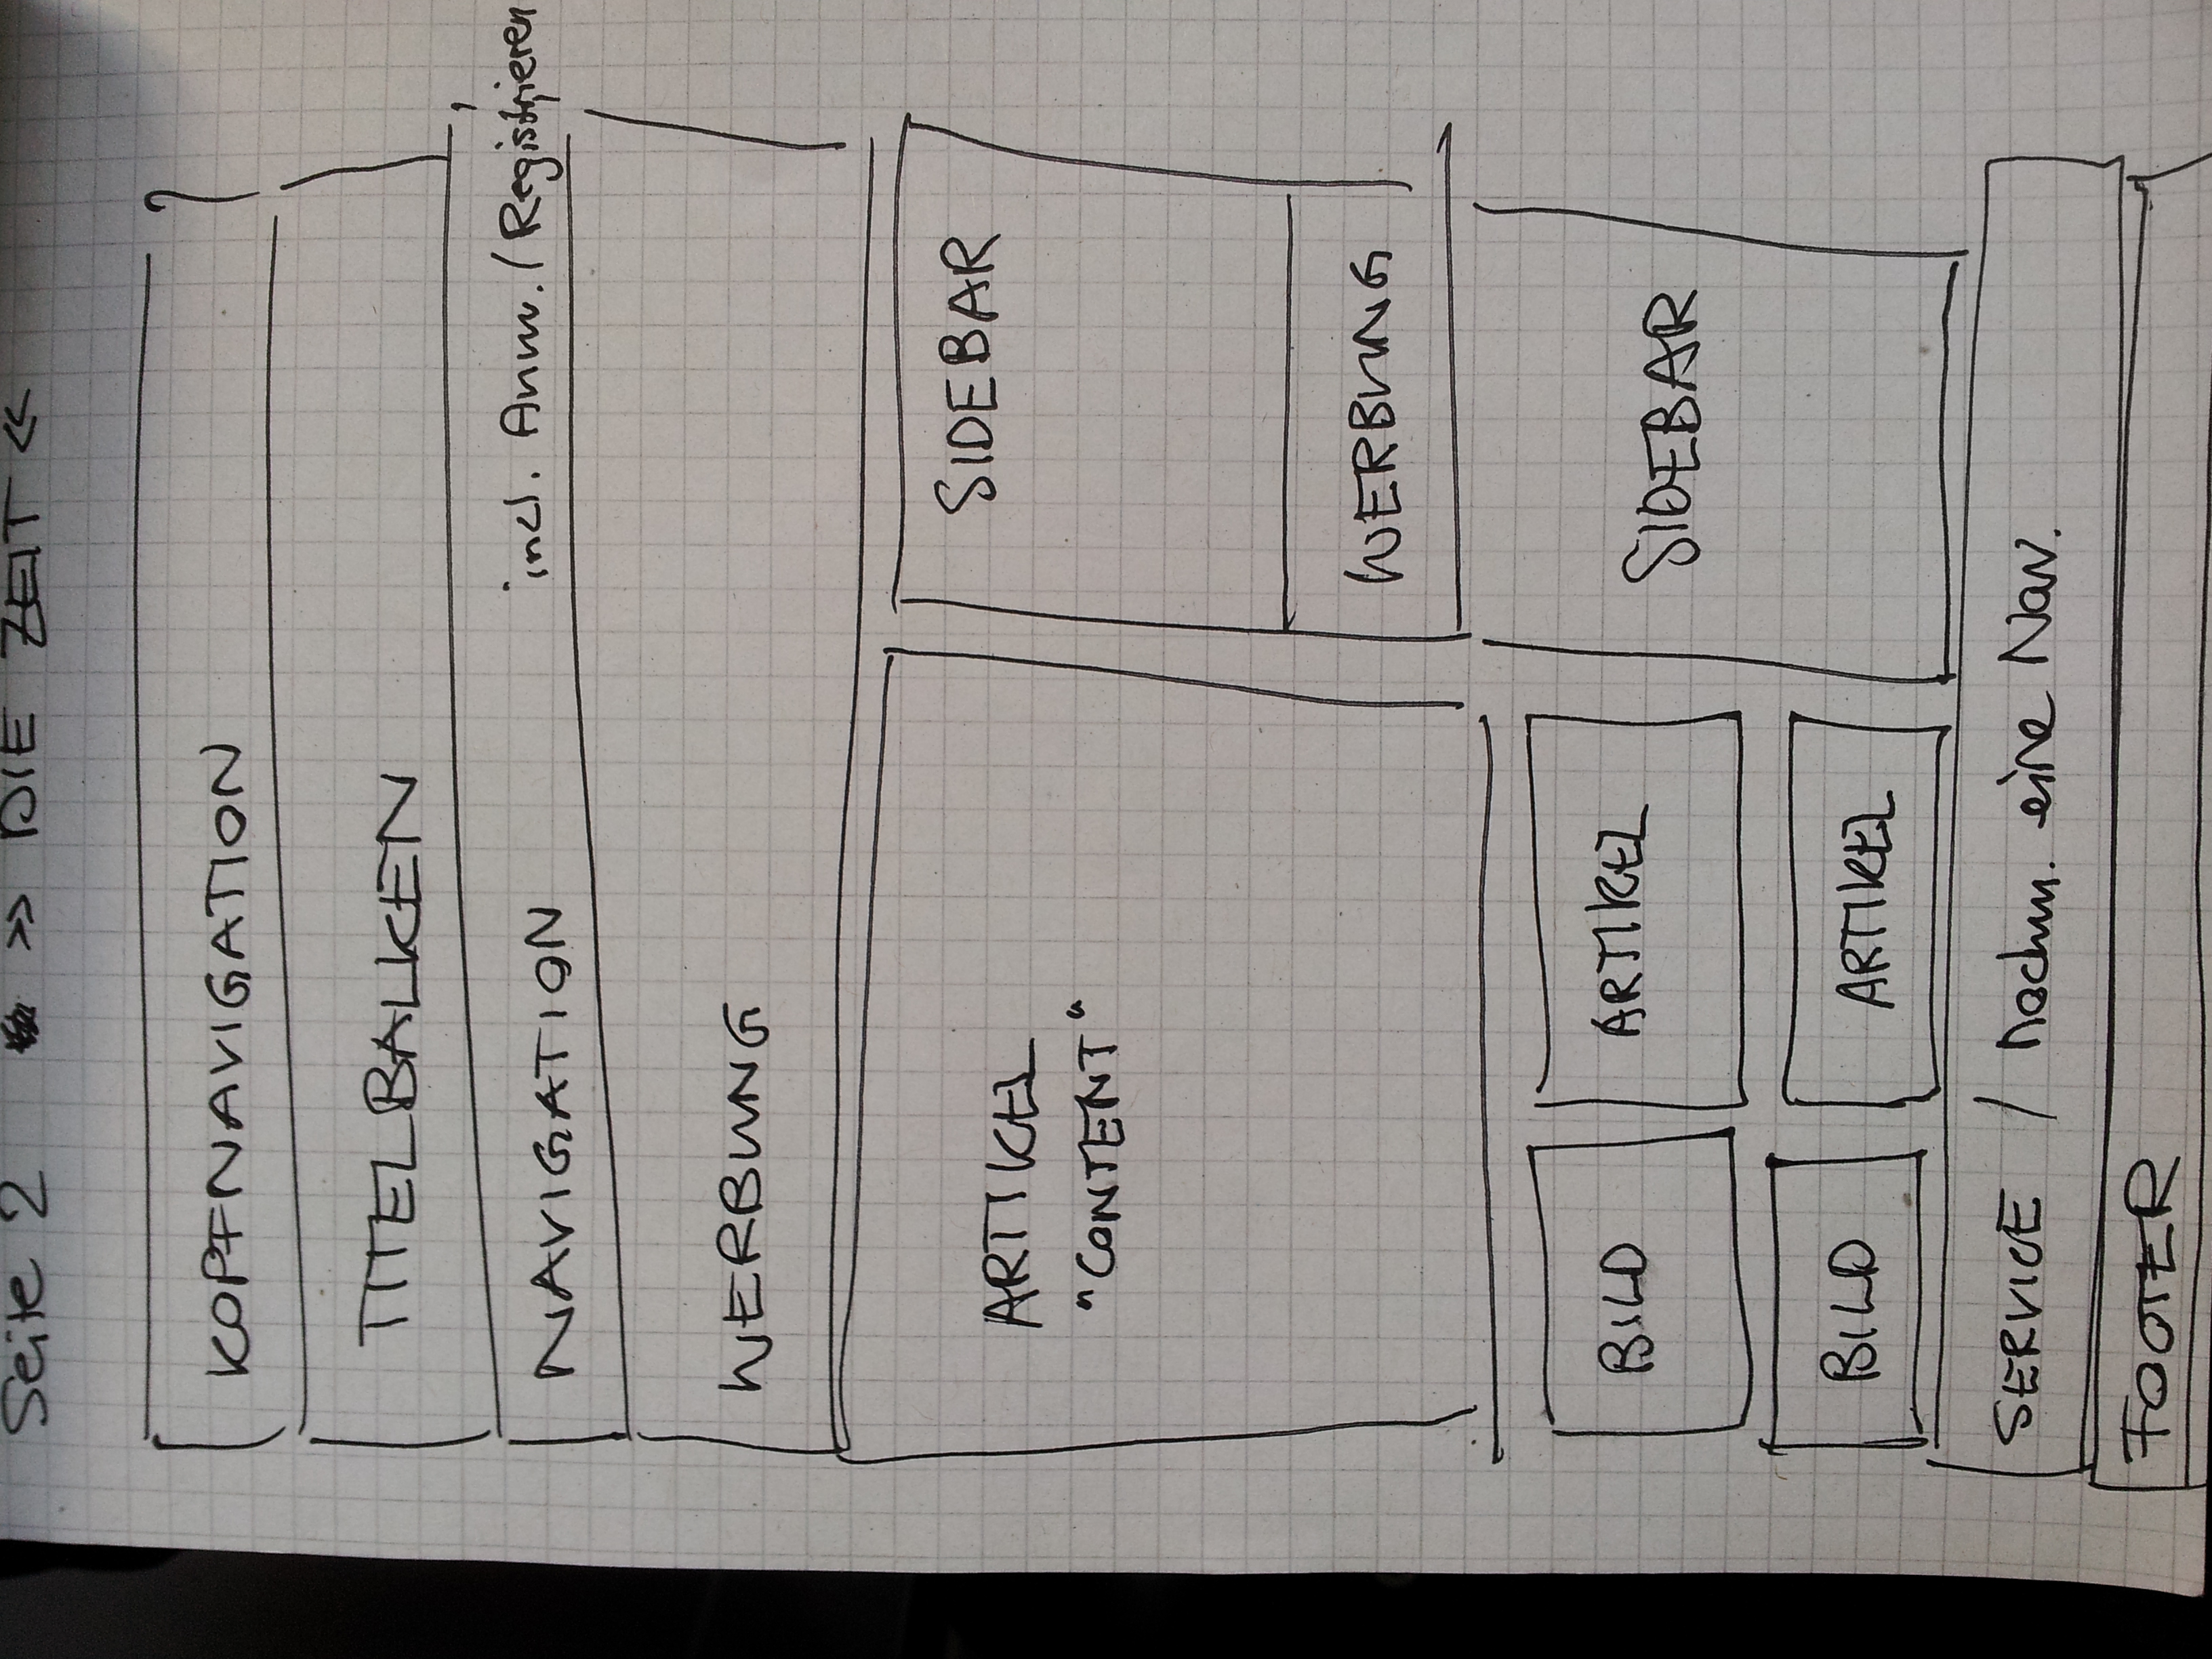 Seite 2 >> DIE ZEIT <<
KOPFNAVIGATION
TITELBALKEN
NAVIGATION incl. Anm. / Registrieren
WERBUNG
ARTIKEL
"CONTENT"
SIDEBAR
WERBUNG
BILD ARTIKEL
BILD ARTIKEL
SIDEBAR
SERVICE / nochm. eine Nav.
FOOTER